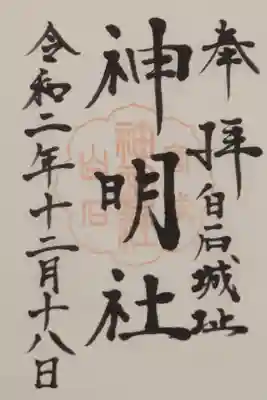 奉拝 白石城址
神明社
令和二年十二月十八日